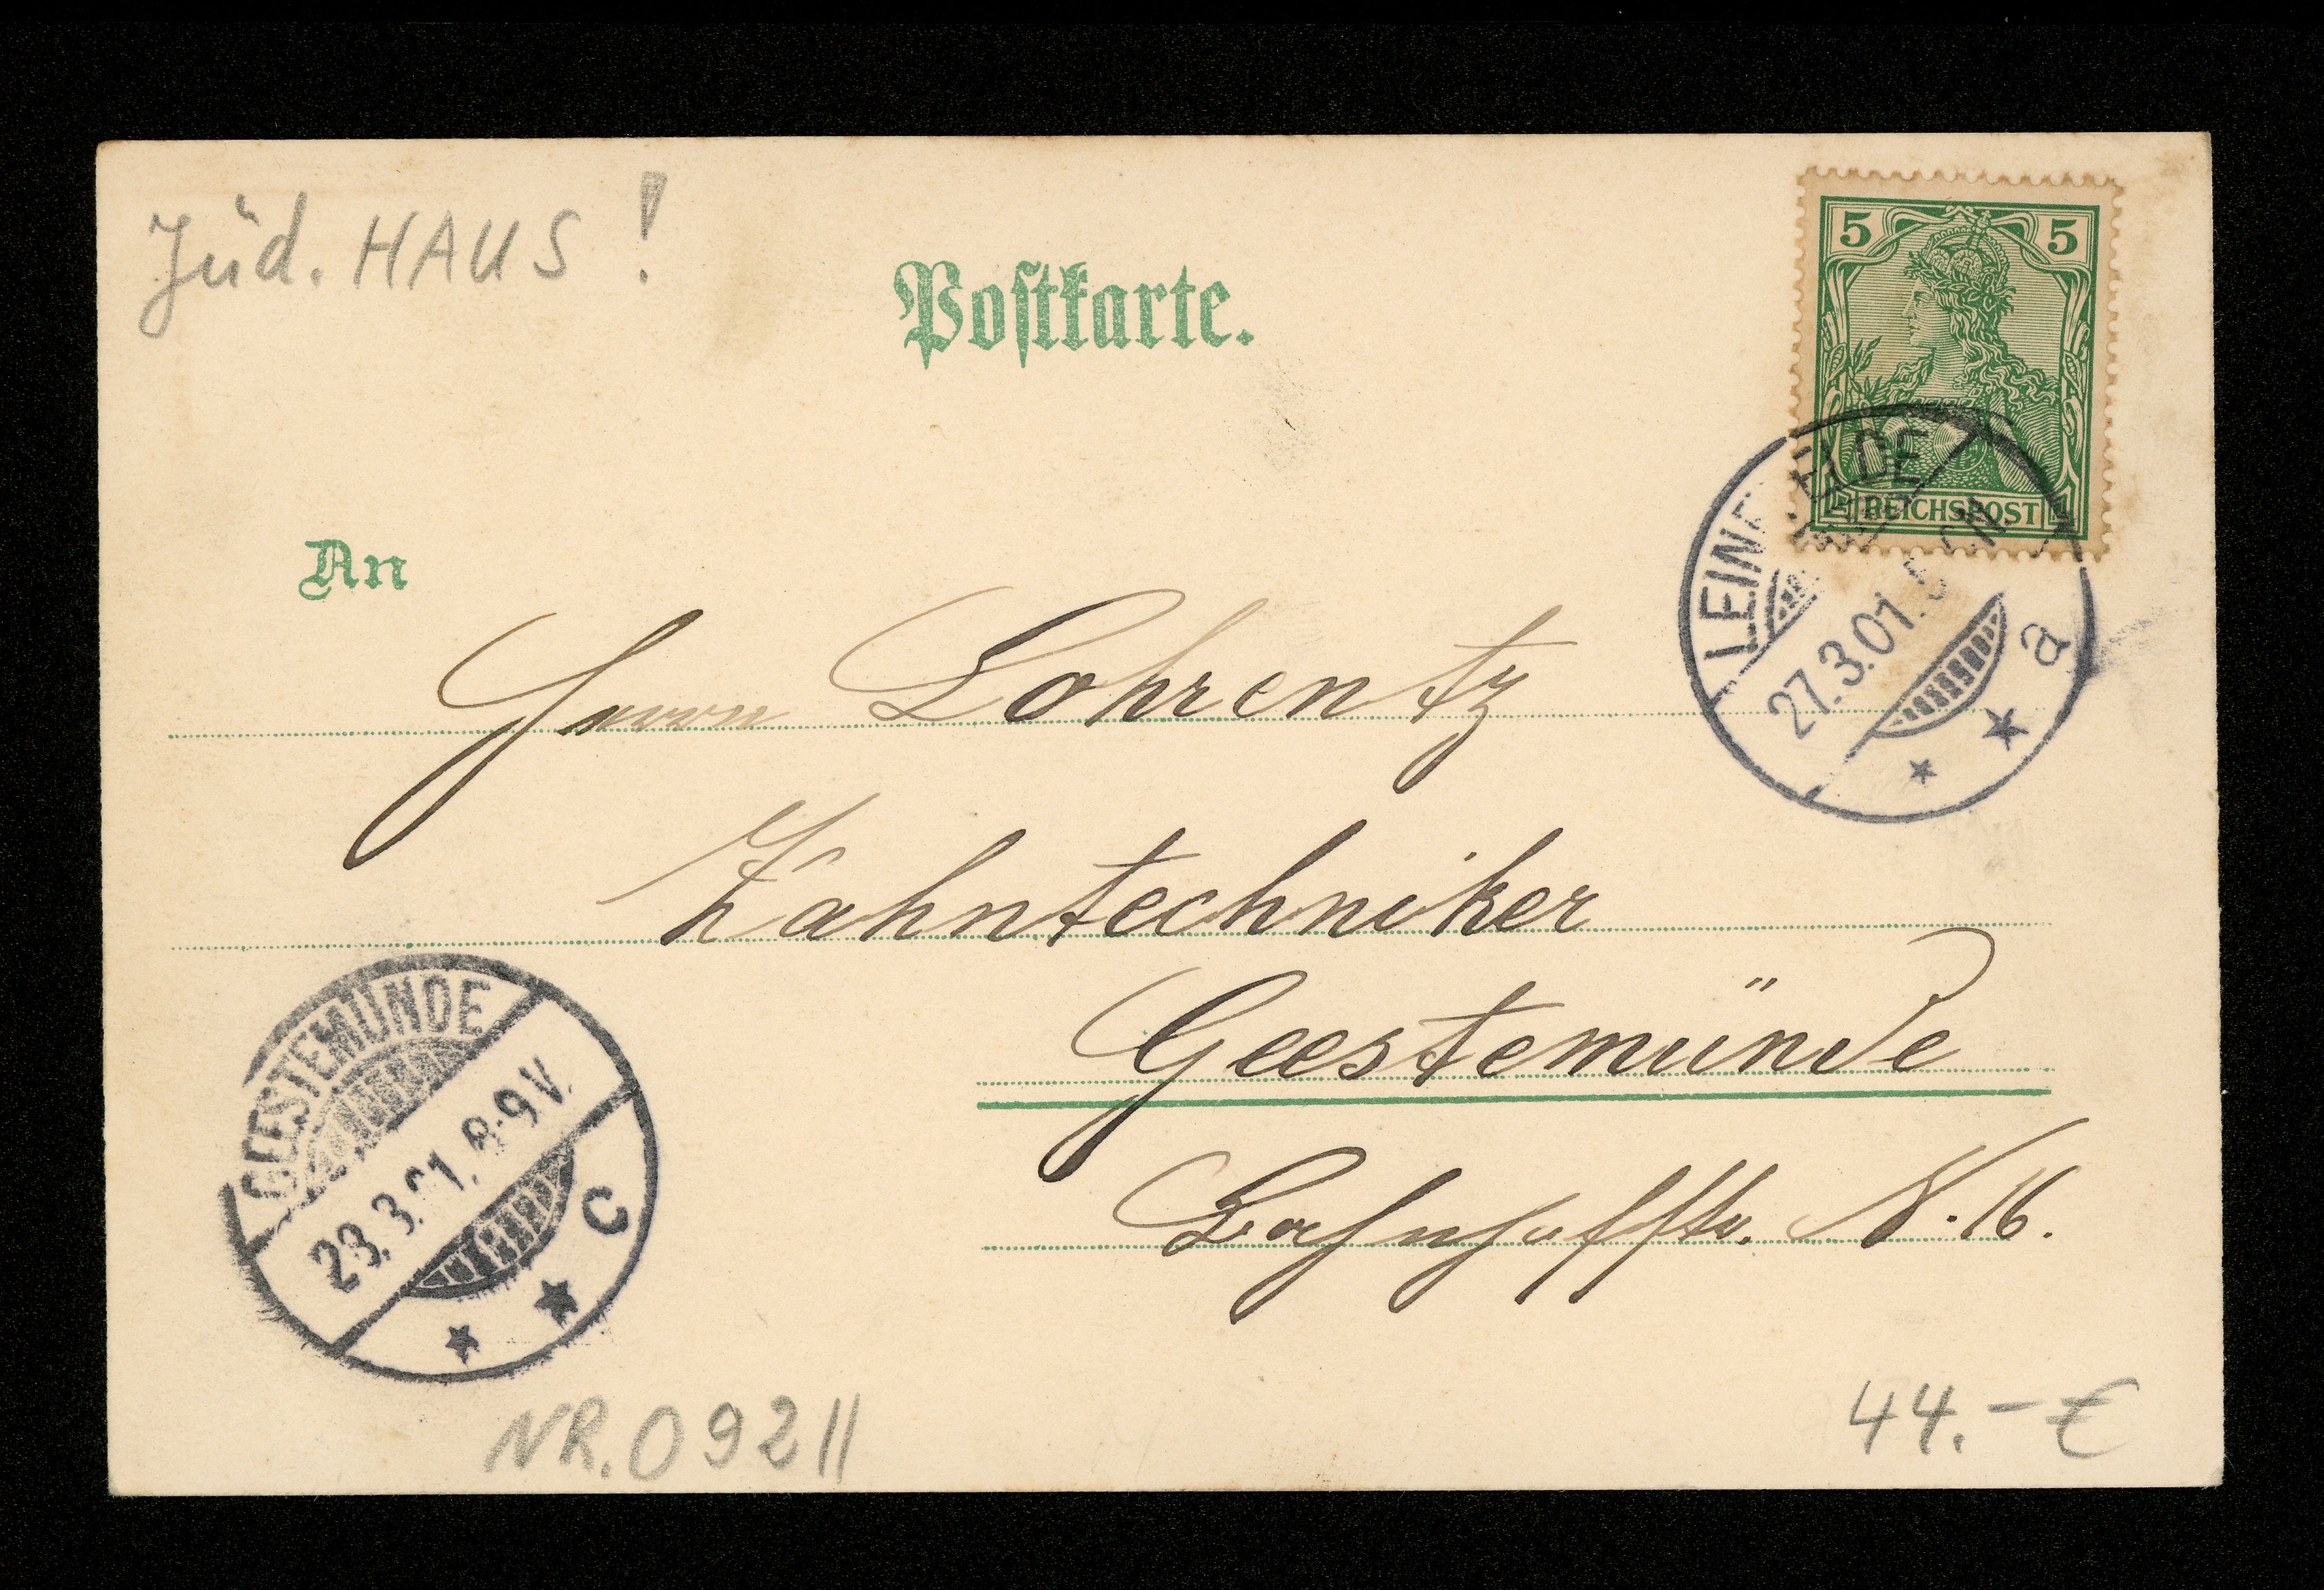 Jüd. HAUS!
Postkarte.
5 5
REICHSPOST
LEINEFELDE
27.3.01. 5
a
An
Herrn Lohrentz
Zahntechniker
Geestemünde
Bahnhofstr. N. 16.
GEESTEMÜNDE
28.3.01. 8-9V.
c
NR. 09211
44.-€